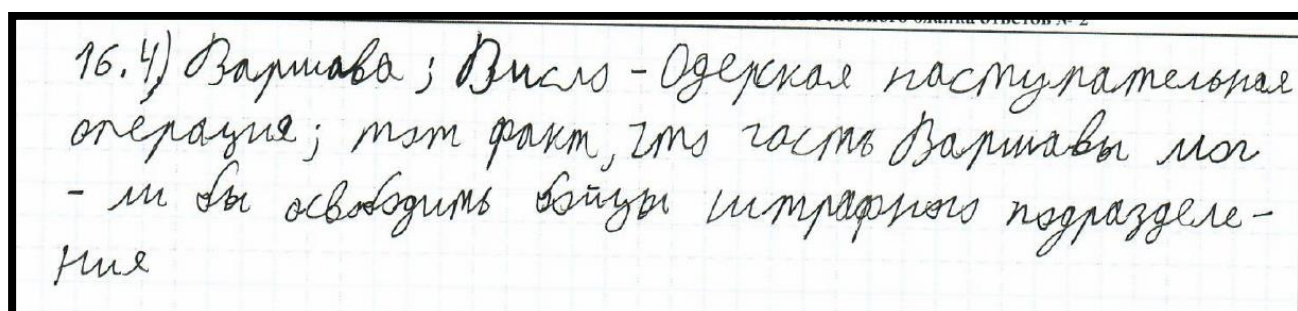 16.4) Варшава; Висло - Одерская наступательная
операция; тот факт, что часть Варшавы мог
- ли бы освободить бойцы штрафного подразделе-
ния